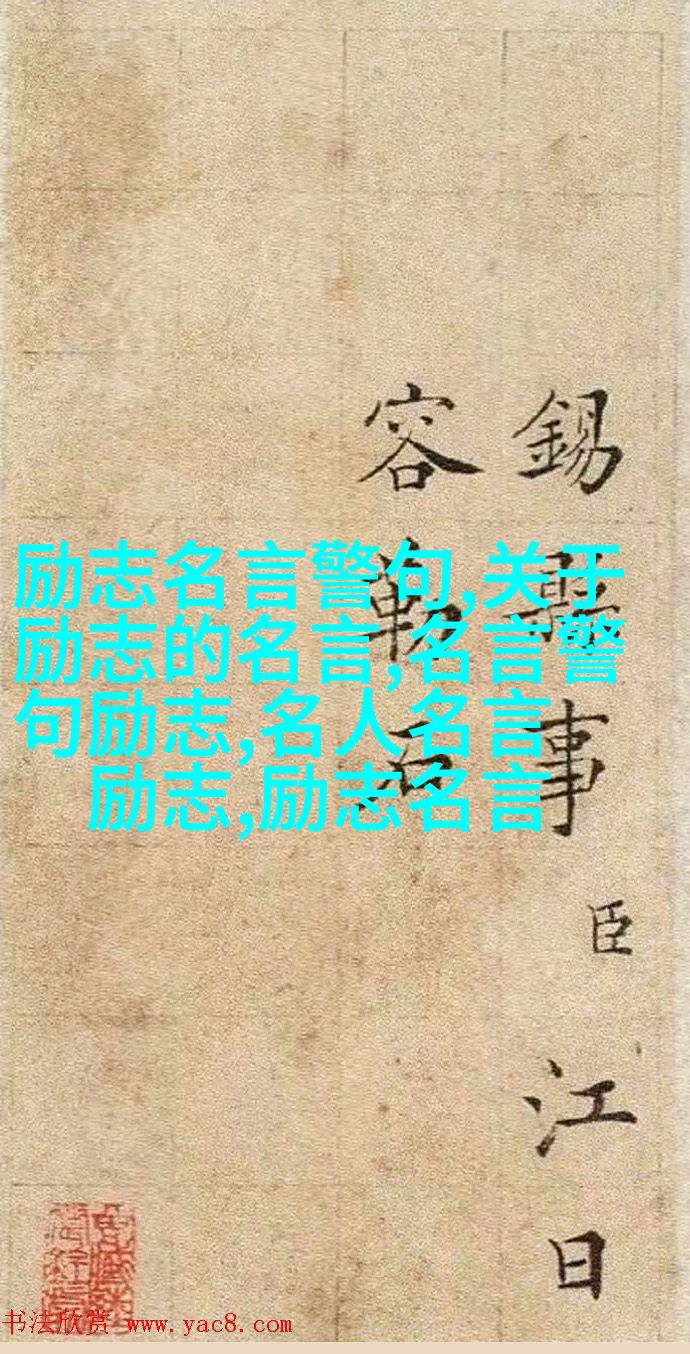 錫
事
臣
江
日
容
勒
石
励志名言警句,关于
励志的名言,名言警
句励志,名人名言
励志,励志名言
书法欣赏 www.yac8.com